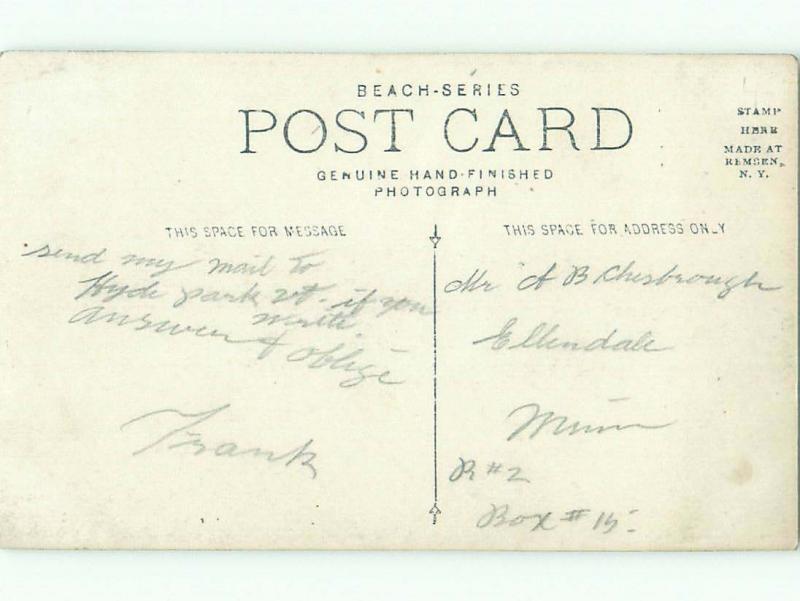 BEACH-SERIES
POST CARD
GENUINE HAND-FINISHED
PHOTOGRAPH
STAMP
HERE
MADE AT
REMSEN,
N. Y.
THIS SPACE FOR MESSAGE
send my mail to
Hyde park Vt. if you
write.
answer & oblige
Frank
THIS SPACE FOR ADDRESS ONLY
Mr A B Chesbrough
Ellendale
Minn
R #2
Box # 15